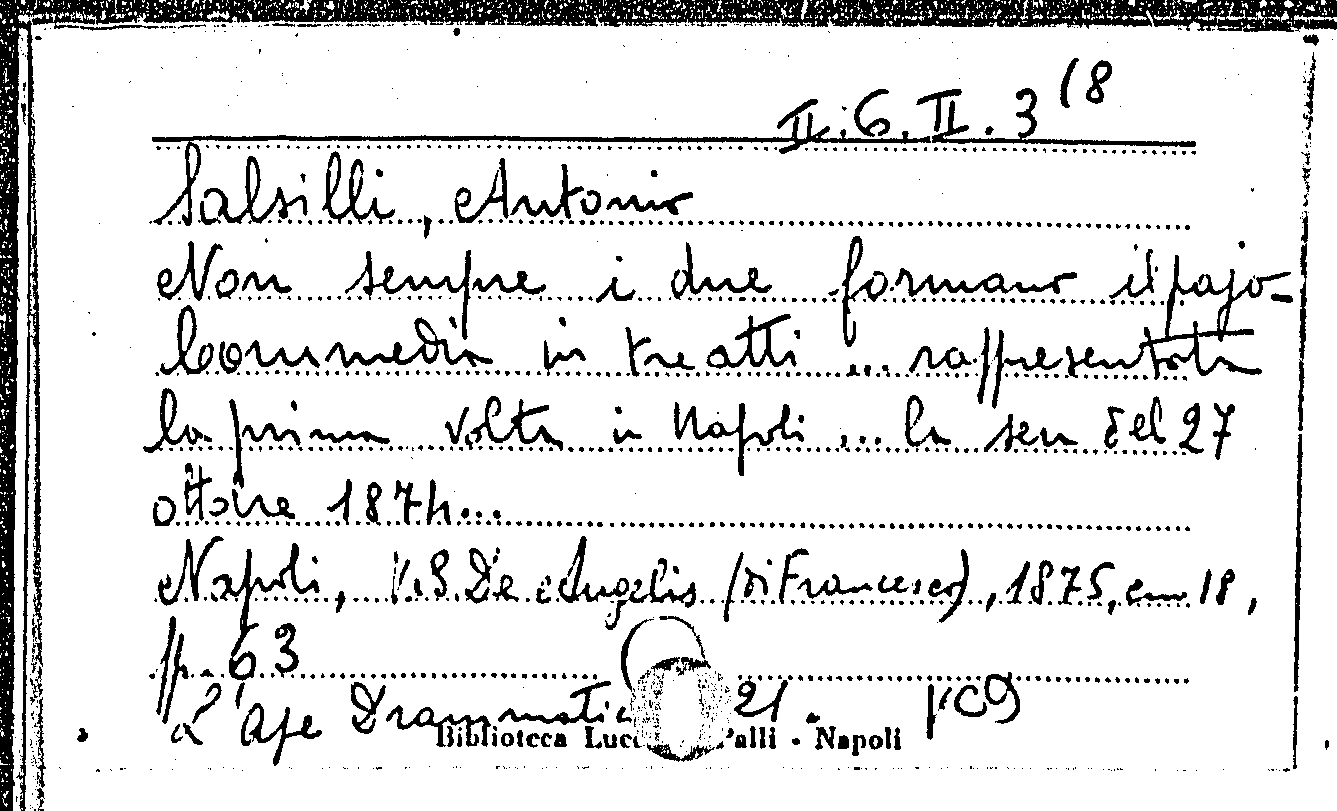 II.6.II.3(8
Salsilli, Antonio
Non sempre i due formano il pajo-
Commedia in tre atti ... rappresentata
la prima volta in Napoli ... la sera del 27
ottobre 1874...
Napoli, De Angelis (di Francesco), 1875, cm 18,
pp. 63
L'Ape Drammatica 21.
Biblioteca Lucc Palli - Napoli